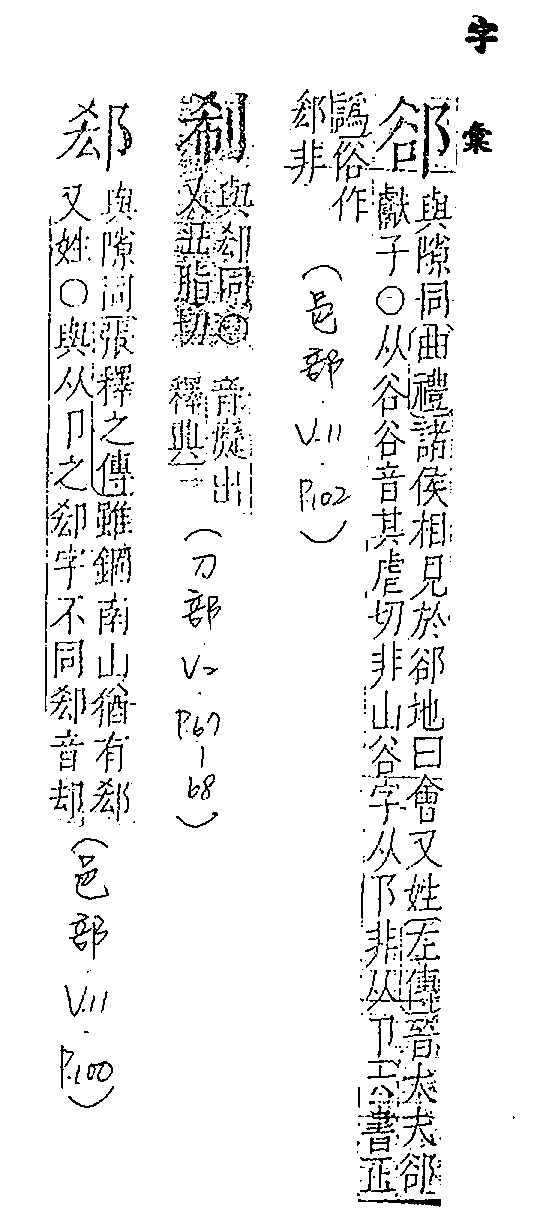 字彙
郤
與隙同曲禮諸侯相見於郤地曰會又姓左傳晉大夫郤
獻子○从谷谷音其虐切非山谷字从阝非从卩六書正
譌俗作
郄非
(邑部.V.11.P.102)
與郄同○
又丑脂切
音癡出
釋典
(刀部.V2.P.67-68)
郄
與隙同張釋之傳雖錮南山猶有郄
又姓○與从卩之却字不同却音却
(邑部.V.11.P.100)